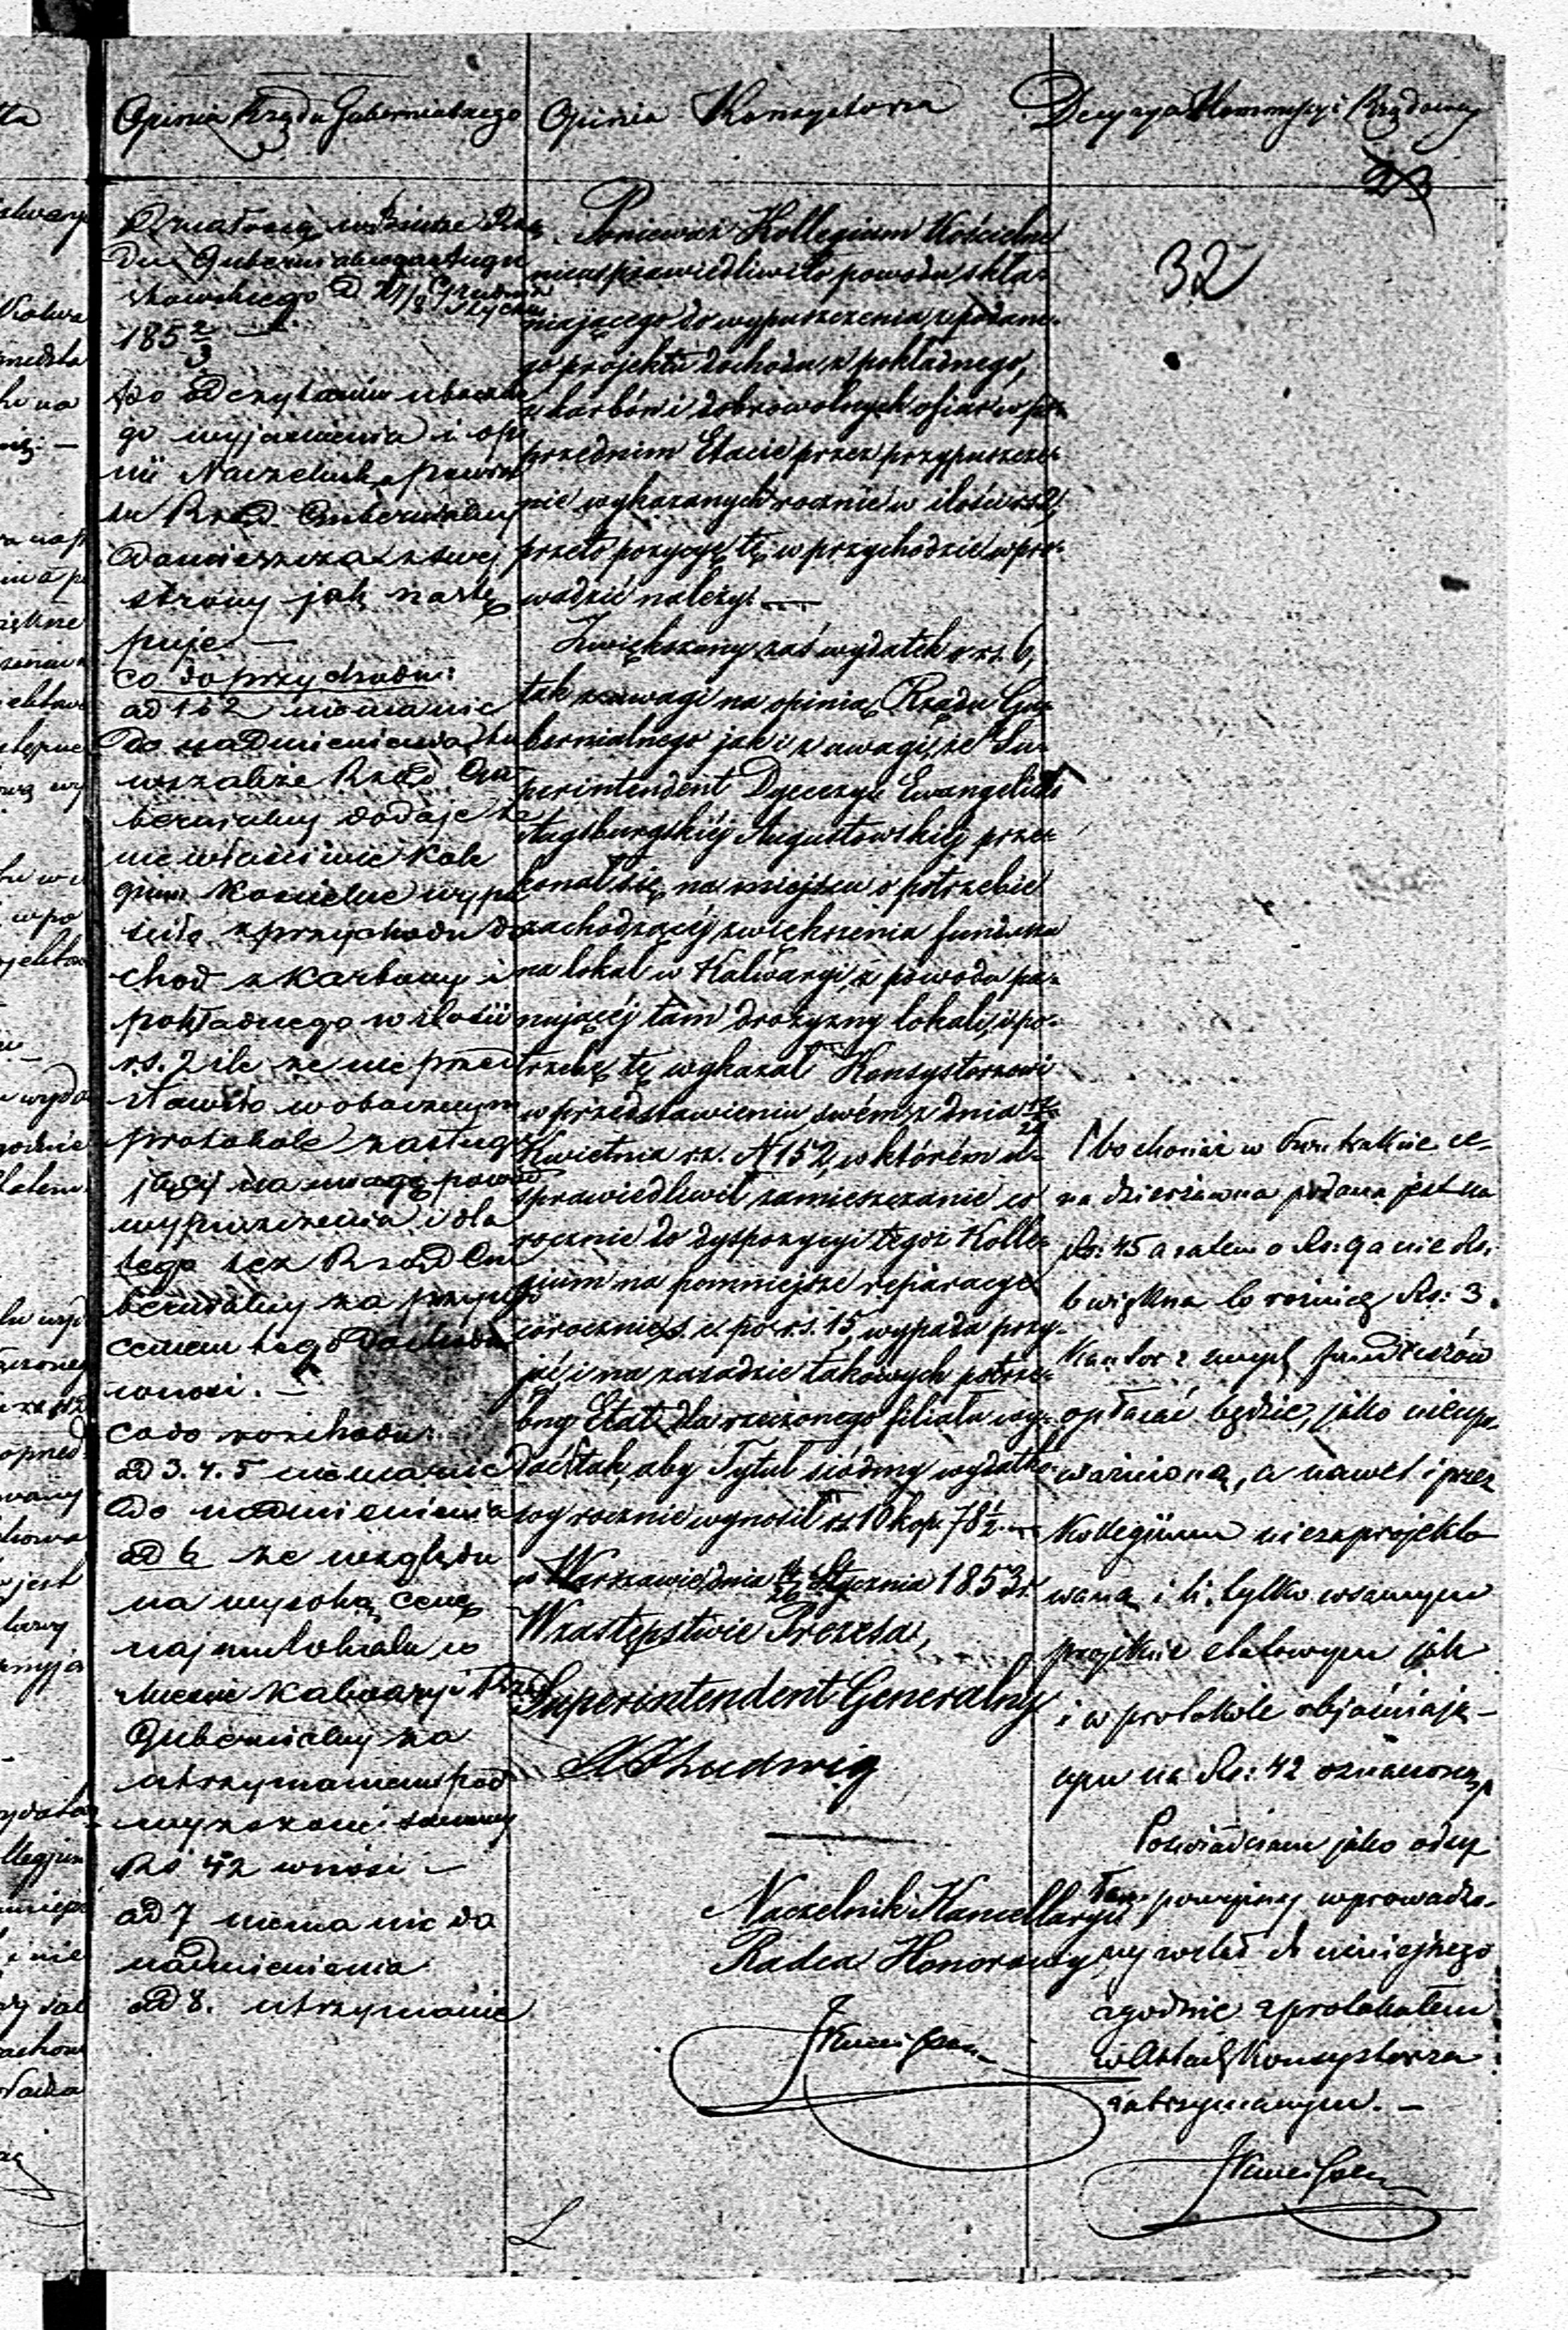 Opinia Rządu Gubernialnego
działo się w Biurze Rzą
du Gubernialnego Augu
stowskiego d. 27/8 Grudnia Stycznia
185 2/3
Po odczytaniu
go wyjaśnienia i opi
nii Naczelnika powia
tu Rząd Gubernialny
zamieszcza z swej
strony jak nastę
puje
co do przychodu:
ad 1 i 2 niema nic
do nadmienienia
wszakże Rząd Gu
bernialny dodaje że
niewłaściwie Kole
gium Kościelne wypu
ściło z przychodu do
chod z Karbony i
pokładnego w ilości
rs. 2 ile że nie przed
stawiło w obocznym
protokole zasługu
jącej na uwagę powod
wypuszczenia i dla
tego też Rząd Gu
bernialny za przyję
ciem tego dochodu
wnosi. —
co do rozchodu:
ad 3. 4. 5 niema nic
do nadmienienia
ad 6 ze względu
na wysoką cenę
najmu lokalu w
mieście Kalwaryi Rząd
Gubernialny za
utrzymaniem pod
wyższonej summy
Rs 42 wnosi —
ad 7 niema nic do
nadmienienia
ad 8. utrzymanie
Opinia Konsystorza
Ponieważ Kollegium Kościelne
nieusprawiedliwiło powodu skła-
niającego do wypuszczenia z podane-
go projektu dochodu z pokładnego,
z karbon i dobrowolnych ofiar w po-
przednim Etacie przez przypuszcze-
nie wykazanych rocznie w ilości rs 2,
przeto pozycyę tę w przychodzie wpro-
wadzić należy. —
Zwiększony zaś wydatek o rs. 6,
tak z uwagi na opinią Rządu Gu-
bernialnego jak i z uwagi, że Su-
perintendent Dyecezyi Ewangelicko
Augsburgskiej Augustowskiej prze-
konał się na miejscu o potrzebie
zachodzącej zwiększenia funduszu
na lokal w Kalwaryi, z powodu pa-
nującej tam drożyzny lokali, i po-
trzebę tę wykazał Konsystorzowi
w przedstawieniu swém z dnia
Kwietnia r.z. N 152, w którém u-
sprawiedliwił zamieszczanie co
rocznie do dyspozycyi tegoż Kolle-
gium na pomniejsze reparacye
corocznie, s. c. po rs. 15, wypada przy-
jąć i na zasadzie takowych potrze-
bny Etat dla rzeczonego filiału wy-
dać tak, aby Tytuł siódmy wydatko-
wy rocznie wynosił rs. 10 kop. 78 1/2. —
w Warszawie, dnia 14/26 Stycznia 1853 r.
W zastępstwie Prezesa,
Superintendent Generalny
Ludwig
Naczelnik Kancellaryi
Radca Honorowy
L
Decyzya Kommissyi Rządowej
23
32
1 bo chociaż w Kontrakcie ce-
na dzierżawna podana jest na
Rs: 45 a zatem o Rs: 9 a nie Rs:
6 większa to różnicę Rs: 3.
Kantor z innych funduszów
opłacać będzie, jako nieupo-
ważnioną, a nawet i przez
Kollegium niezaprojekto
waną i t. tylko w samym
projekcie etatowym jak
i w protokole objaśniają-
cym na Rs: 42 oznaczoną
Poświadczam jako odsy
łacz powyższy wprowadzo-
ny został do niniejszego
zgodnie z protokołem
w Aktach Konsystorza
zatrzymanym. —